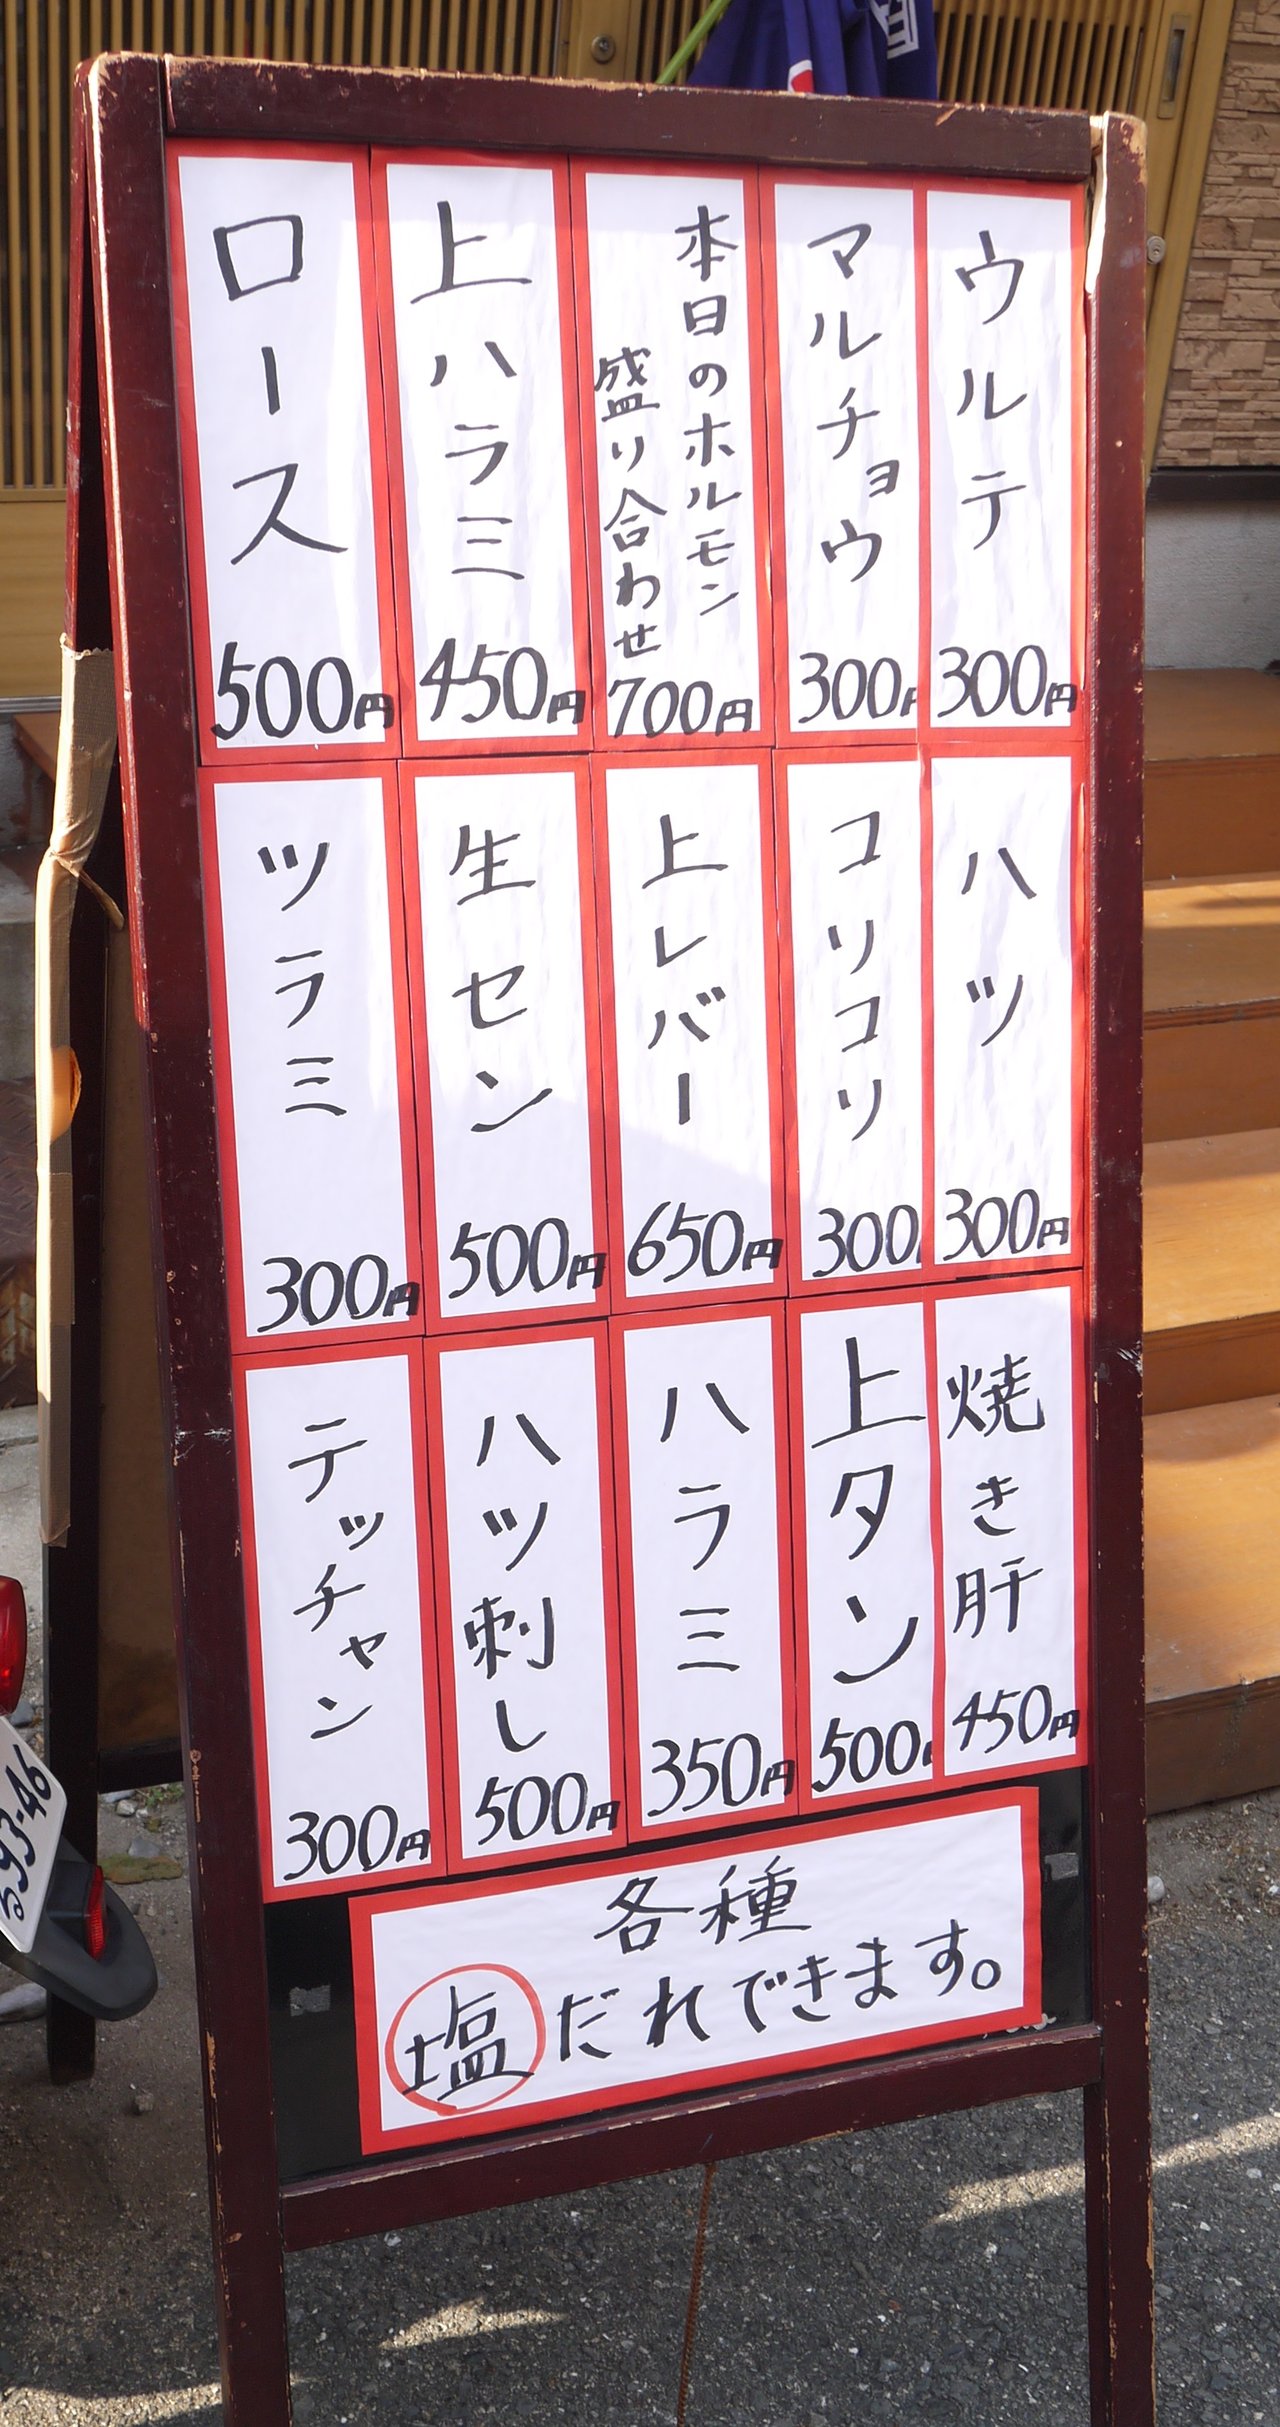 ウルテ
300円
マルチョウ
300円
本日のホルモン
盛り合わせ
700円
上ハラミ
450円
ロース
500円
ハツ
300円
コリコリ
300
上レバー
650円
生セン
500円
ツラミ
300円
焼き肝
450円
上タン
500
ハラミ
350円
ハツ刺し
500円
テッチャン
300円
各種
塩だれできます。
93-46